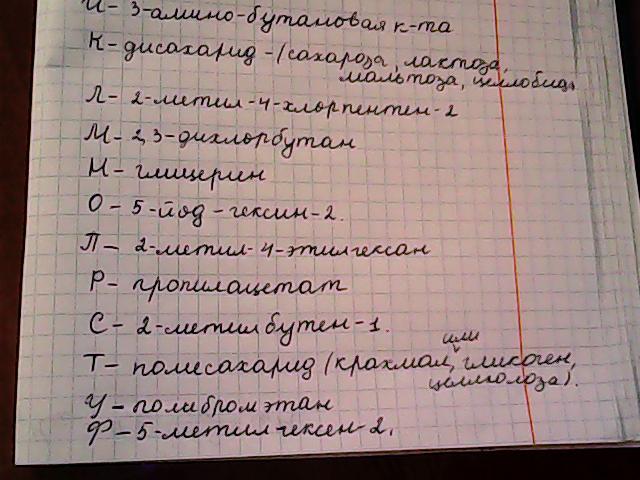 И- 3-амино-бутановая к-та
К- дисахарид -(сахароза, лактоза,
мальтоза, целлобиоза
Л- 2-метил-4-хлорпентен-2
М- 2,3-дихлорбутан
Н- глицерин
О- 5-йод-гексин-2.
П- 2-метил-4-этилгексан
Р- пропилацетат
С- 2-метилбутен-1.
или
Т- полисахарид (крахмал, гликоген,
целлюлоза).
У- полибромэтан
Ф-5-метилгексен-2.